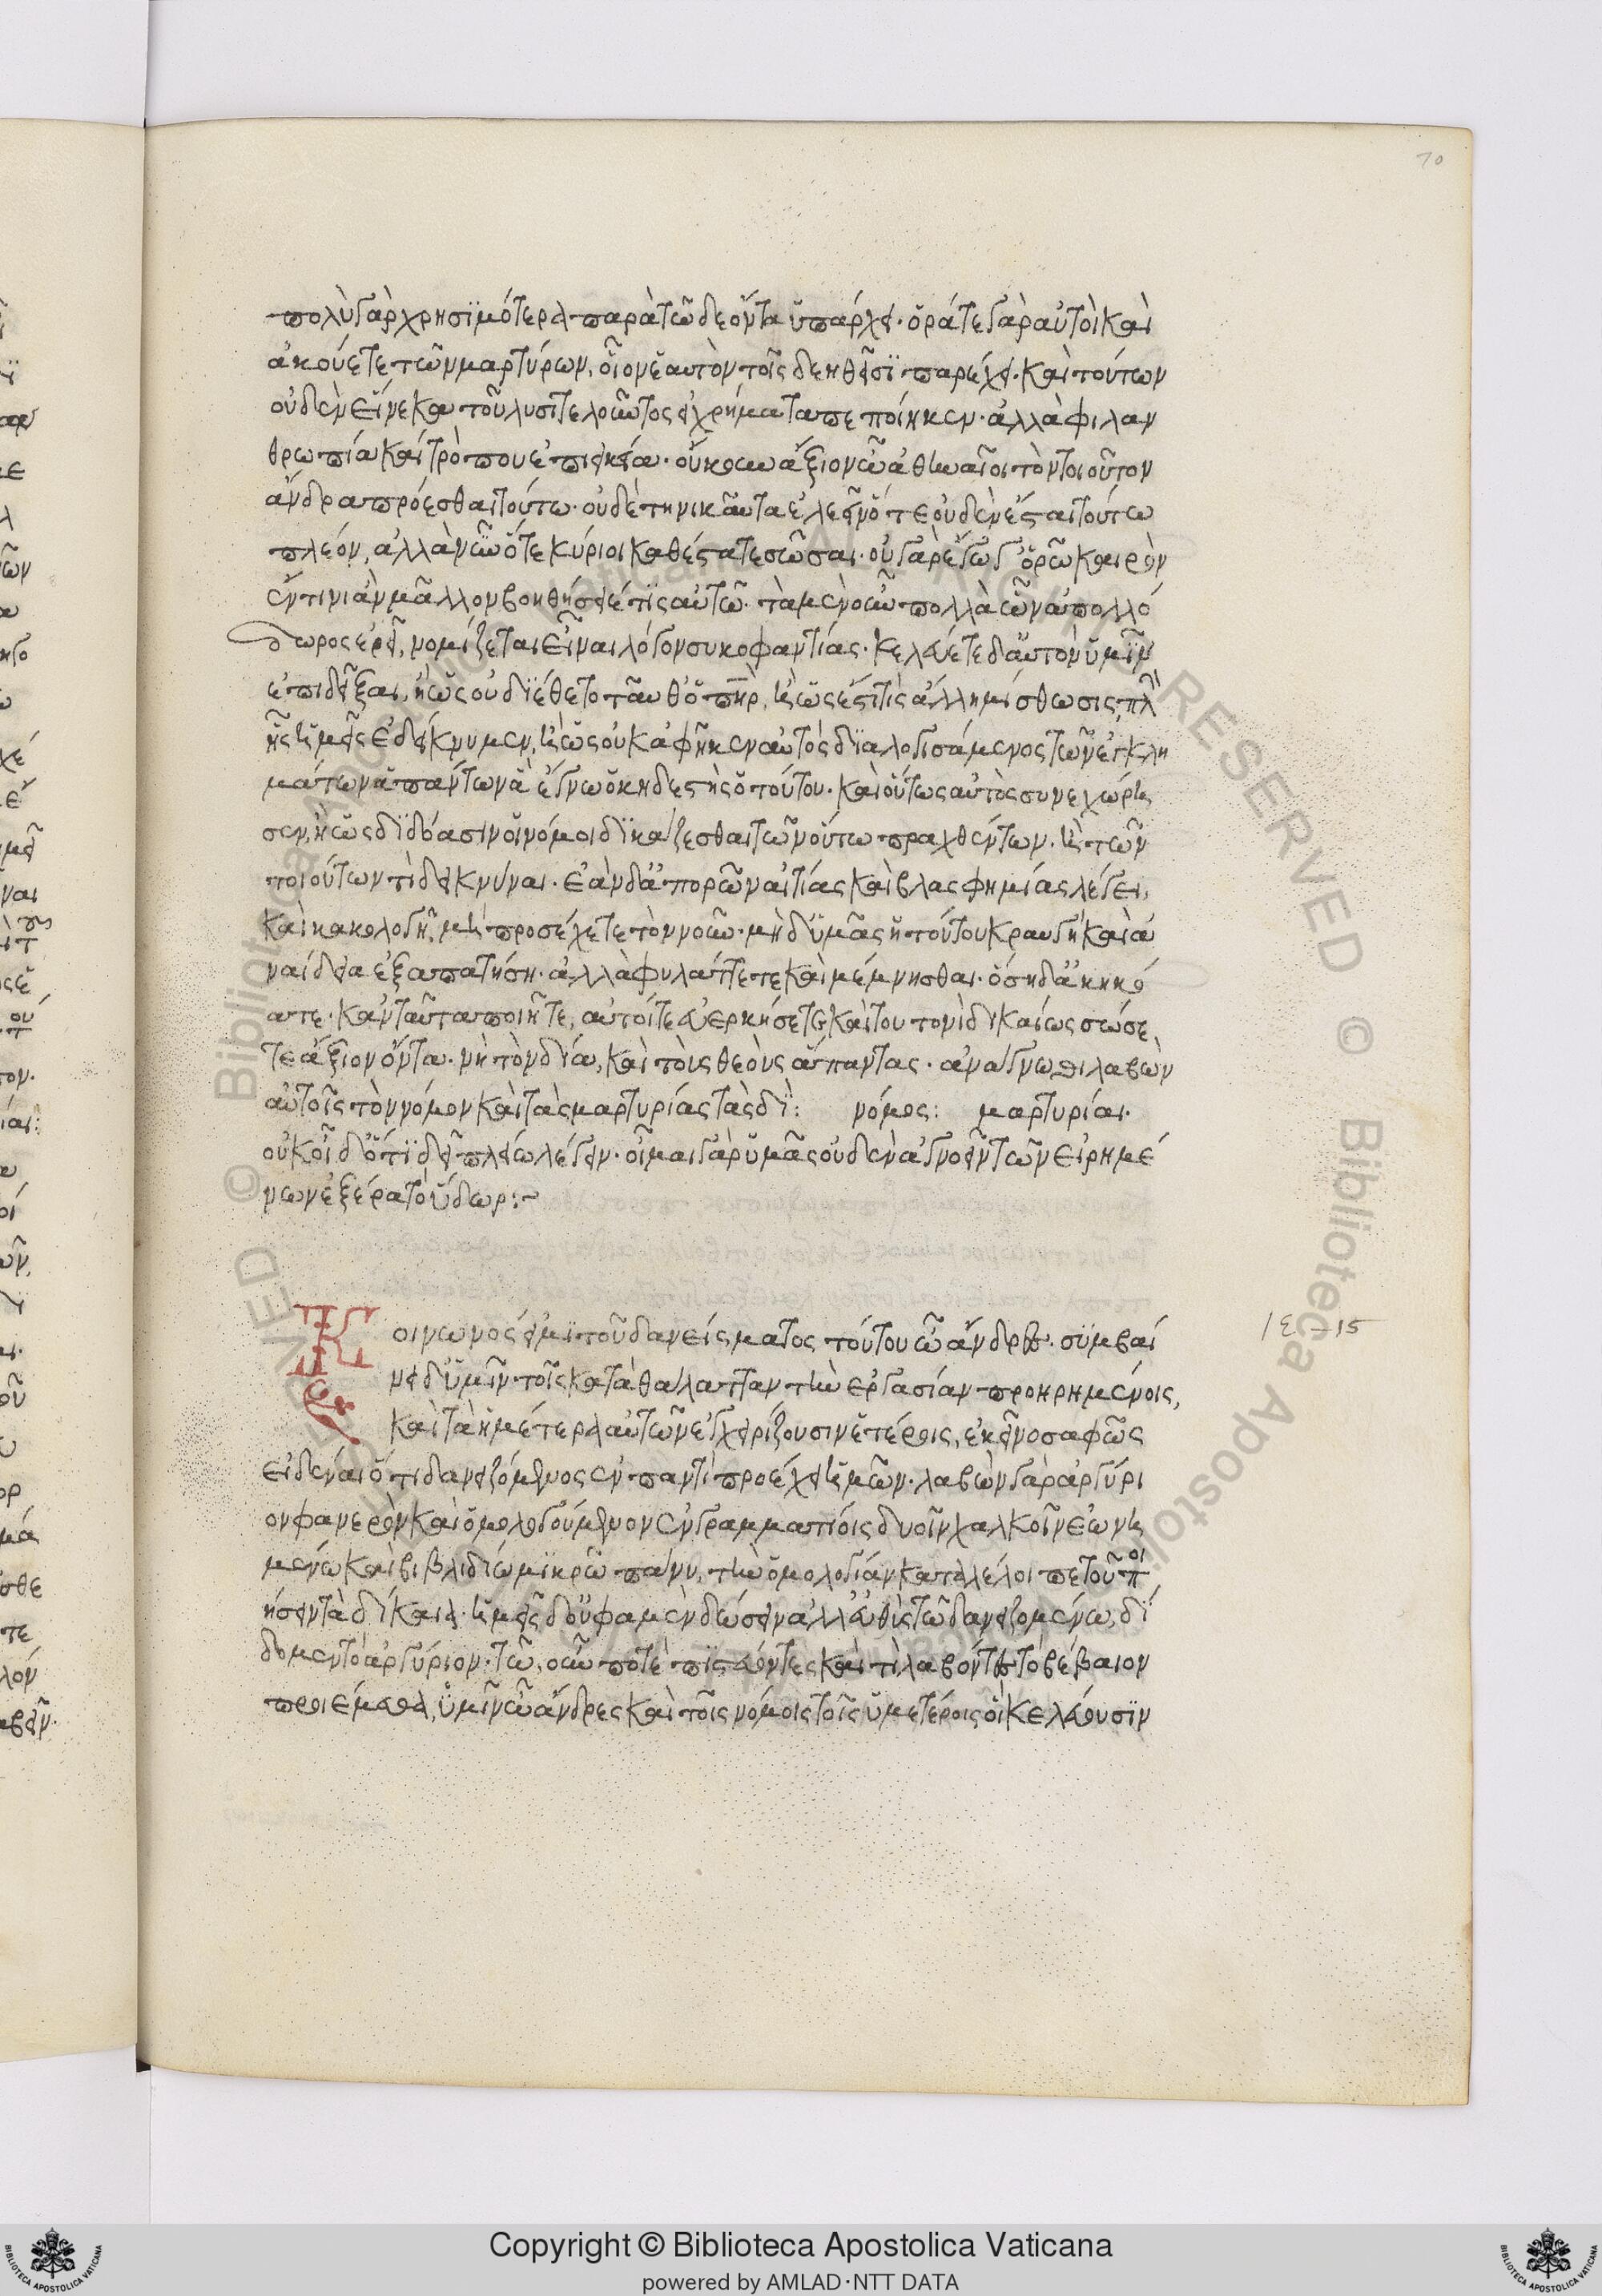 70
πολὺ γὰρ χρησϊμότερα παρὰ τῶ δε ὄντα ὑπάρχει· ὁρᾶτε γὰρ αὐτοὶ καὶ
ἀκούετε τῶν μαρτύρων, οἷον ἑαυτὸν τοῖς δεηθεῖσϊ παρέχει. καὶ τούτων
οὐδὲν εἵνεκα τοῦ λυσιτελοῦντος εἰ χρήματα πεποίηκεν· ἀλλὰ φιλαν
θρωπία καὶ τρόπου ἐπιεικεία· οὔκουν ἄξιον ὦ ἀθηναῖοι τὸν τοιοῦτον
ἄνδρα προέσθαι τούτω· οὐδὲ τηνικαῦτα ἐλεεῖν ὅτε οὐδὲν ἔσται τούτω
πλέον, ἀλλὰ νῦν ὅτε κύριοι καθέστατε σῶσαι· οὐ γὰρ ἔγωγ' ὁρῶ καιρὸν
ἐν τίνι ἂν μᾶλλον βοηθήσειέ τϊς αὐτῶ. τὰ μὲν οὖν πολλὰ ὧν ἀπολλό
δωρος ἐρεῖ, νομίζεται εἶναι λόγον συκοφαντίας. κελεύετε δ' αὐτὸν ὑμῖν
ἐπιδεῖξαι, ἢ ὡς οὐ διέθετο ταῦθ' ὁ πηρ, ἢ ὡς ἔστι τὶς ἄλλη μίσθωσις πλὴ
ἧς ἡμεῖς ἐδείκνυμεν, ἢ ὡς οὐκ ἀφῆκεν αὐτὸς διαλογισάμενος τῶν ἐγκλη
μάτων ἁπάντων ἃ ἔγνω ὁ κηδεστὴς ὁ τούτου. καὶ οὕτως αὐτὸς συνεχώρη
σεν, ἢ ὡς διδόασιν οἱ νόμοι δικάζεσθαι τῶν οὕτω πραχθέντων. ἢ τῶν
τοιούτων τὶ δεικνύναι. ἐὰν δ' ἀπορῶν αἰτίας καὶ βλασφημίας λέγει,
καὶ κακολογῆ, μὴ προσέχετε τὸν νοῦν· μὴ δ' ὑμᾶς ἡ τούτου κραυγὴ καὶ ἀ
ναίδεια ἐξαπατήση. ἀλλὰ φυλάττετε καὶ μέμνησθαι. ὅση δ' ἀκηκό
ατε. κἂν ταῦτα ποιῆτε, αὐτοί τε εὐερκήσετε καὶ τουτονὶ δικαίως σώσε
τε ἄξιον ὄντα· νὴ τὸν δία, καὶ τοὺς θεοὺς ἅπαντας. ἀνάγνωθι λαβὼν
αὐτοῖς τὸν νόμον καὶ τὰς μαρτυρίας τὰς δϊ: νόμος: μαρτυρίαι.
οὐκ οἶδ' ὅτϊ δεῖ πλείω λέγειν. οἶμαι γὰρ ὑμᾶς οὐδὲν ἀγνοεῖν τῶν εἰρημέ
νων ἐξέρα τὸ ὕδωρ:~
Κοινωνός εἰμϊ τοῦ δανείσματος τούτου ὦ ἄνδρες. συμβαί
νει δ' ὑμῖν τοῖς κατὰ θάλατταν τὴν ἐργασίαν προηρημένοις,
καὶ τὰ ἡμέτερα αὐτῶν ἐγχειρίζουσιν ἑτέροις, ἐκεῖνο σαφῶς
εἰδέναι ὅτι δανειζόμενος ἐν παντὶ προέχει ἡμῶν. λαβὼν γὰρ ἀργύρι
ον φανερὸν καὶ ὁμολογούμενον ἐν γραμματείοις δυοῖν χαλκοῖν ἐωνη
μένω καὶ βιβλιδίω μϊκρῶ πάνυ, τὴν ὁμολογίαν καταλέλοιπε τοῦ ποι
ήσειν τὰ δίκαια. ἡμεῖς δ' οὔ φαμεν δώσειν ἀλλ' εὐθὺς τῶ δανειζομένω, δί
δομεν τὸ ἀργύριον. τῶ, οὖν ποτὲ πϊστεύοντες καὶ τὶ λαβόντες τὸ βέβαιον
προιέμεθα, ὑμῖν ὦ ἄνδρες καὶ τοῖς νόμοις τοῖς ὑμετέροις οἳ κελεύουσϊν
ιε 15
Copyright © Biblioteca Apostolica Vaticana
powered by AMLAD·NTT DATA